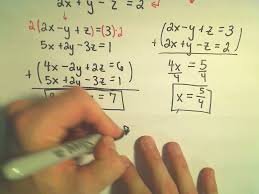 2x + y - z = 2
2(2x-y+z)=(3)·2
5x+2y-3z=1
+(4x-2y+2z=6
5x+2y-3z=1)
z = 7
(2x-y+z=3
+ 2x+y-z=2)
4x/4 = 5/4
x = 5/4